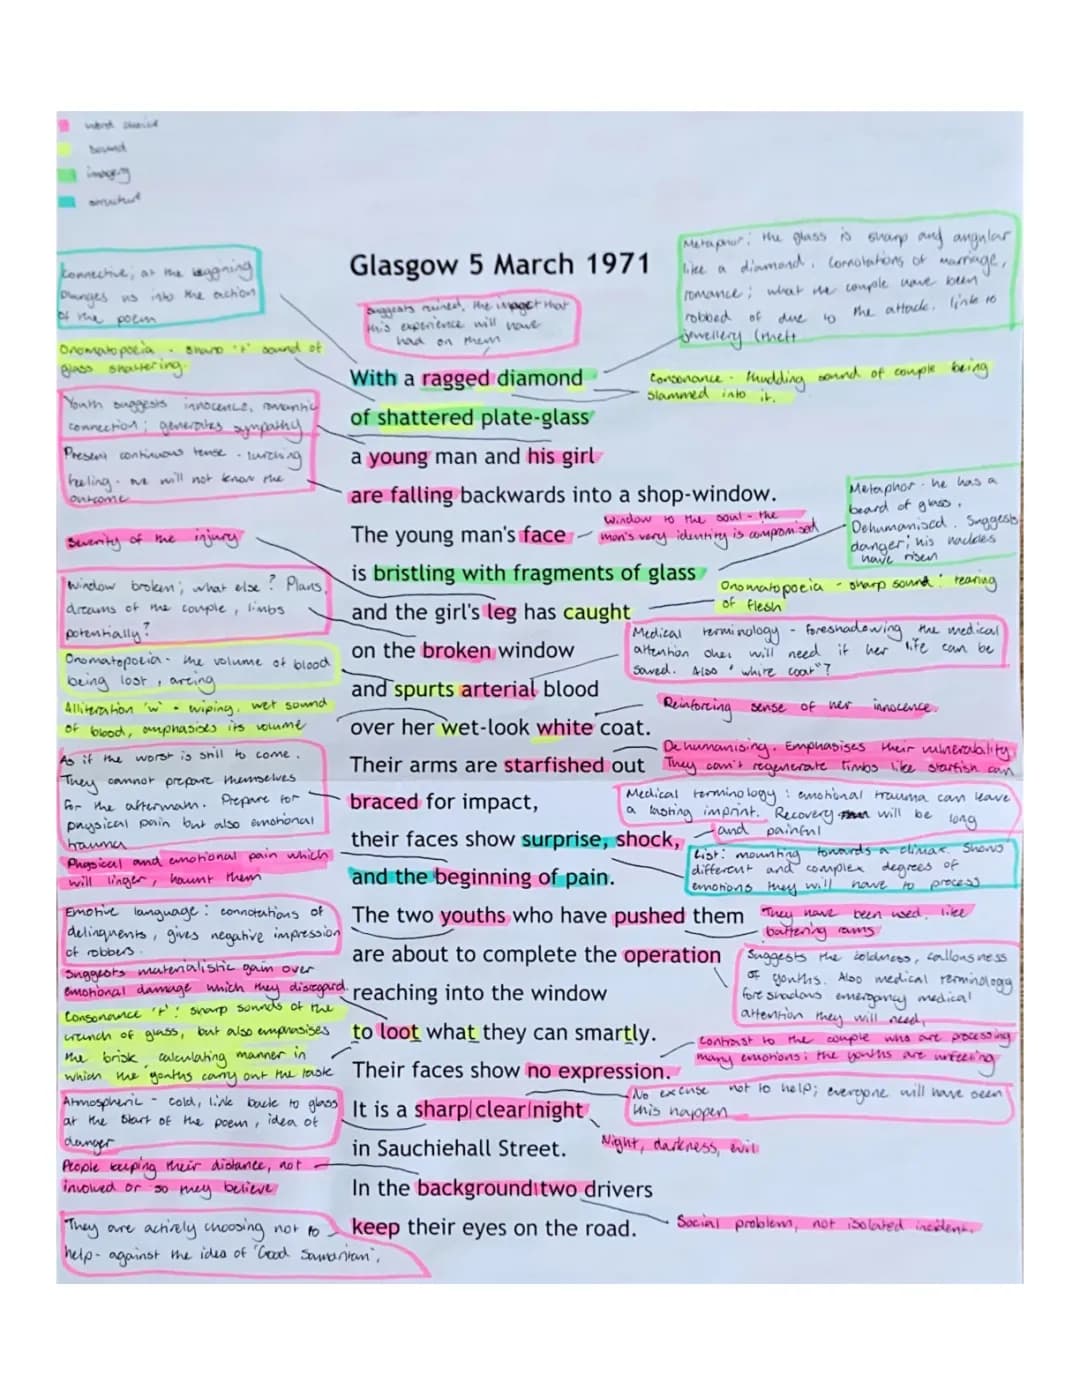 word choice
sound
imagery
structure
Glasgow 5 March 1971
Connective; at the beggining
plunges us into the action
of the poem
Suggests ruined, the impact that
this experience will have
had on them
Metaphor: the glass is sharp and angular
like a diamond. Connotations of marriage,
romance; what the couple have been
robbed of due to the attack. Links to
jewellery theft.
Onomatopoeia - sharp 't' sound of
glass shattering.
With a ragged diamond
Consonance - thudding sound of couple being
slammed into it.
Youth suggests innocence, romantic
connection; generates sympathy
of shattered plate-glass
Present continuous tense - lurching
feeling - we will not know the
outcome
a young man and his girl
are falling backwards into a shop-window.
Metaphor - he has a
beard of glass.
Dehumanised. Suggests
danger; his hackles
have risen
Severity of the injury
The young man's face
Window to the soul - the
man's very identity is compromised
is bristling with fragments of glass
Window broken; what else? Plans,
dreams of the couple, limbs
potentially?
and the girl's leg has caught
Onomatopoeia - sharp sound: tearing
of flesh
on the broken window
Medical terminology - foreshadowing the medical
attention she will need if her life can be
saved. Also "white coat"?
Onomatopoeia - the volume of blood
being lost, arcing
and spurts arterial blood
Alliteration 'w' - wiping, wet sound
of blood, emphasises its volume
over her wet-look white coat.
Reinforcing sense of her innocence.
As if the worst is still to come.
They cannot prepare themselves
for the aftermath. Prepare for
physical pain but also emotional
trauma
Their arms are starfished out
Dehumanising. Emphasises their vulnerability
They can't regenerate limbs like starfish can
braced for impact,
Medical terminology: emotional trauma can leave
a lasting imprint. Recovery will be long
and painful
their faces show surprise, shock,
Physical and emotional pain which
will linger, haunt them
and the beginning of pain.
List: mounting towards a climax. Shows
different and complex degrees of
emotions they will have to process
Emotive language: connotations of
delinquents, gives negative impression
of robbers.
The two youths who have pushed them
They have been used like
battering rams
are about to complete the operation
Suggests the coldness, callousness
of youths. Also medical terminology
foreshadows emergency medical
attention they will need.
Suggests materialistic gain over
emotional damage which they disregard.
reaching into the window
Consonance 't': sharp sounds of the
crunch of glass, but also emphasises
the brisk, calculating manner in
which the youths carry out the task
to loot what they can smartly.
Contrast to the couple who are processing
many emotions; the youths are unfeeling
Their faces show no expression.
No excuse not to help; everyone will have seen
this happen
Atmospheric - cold, link back to glass
at the start of the poem, idea of
danger
It is a sharp|clear|night
in Sauchiehall Street.
Night, darkness, evil
People keeping their distance, not
involved or so they believe
In the background|two drivers
keep their eyes on the road.
Social problem, not isolated incident.
They are actively choosing not to
help - against the idea of 'Good Samaritan'.